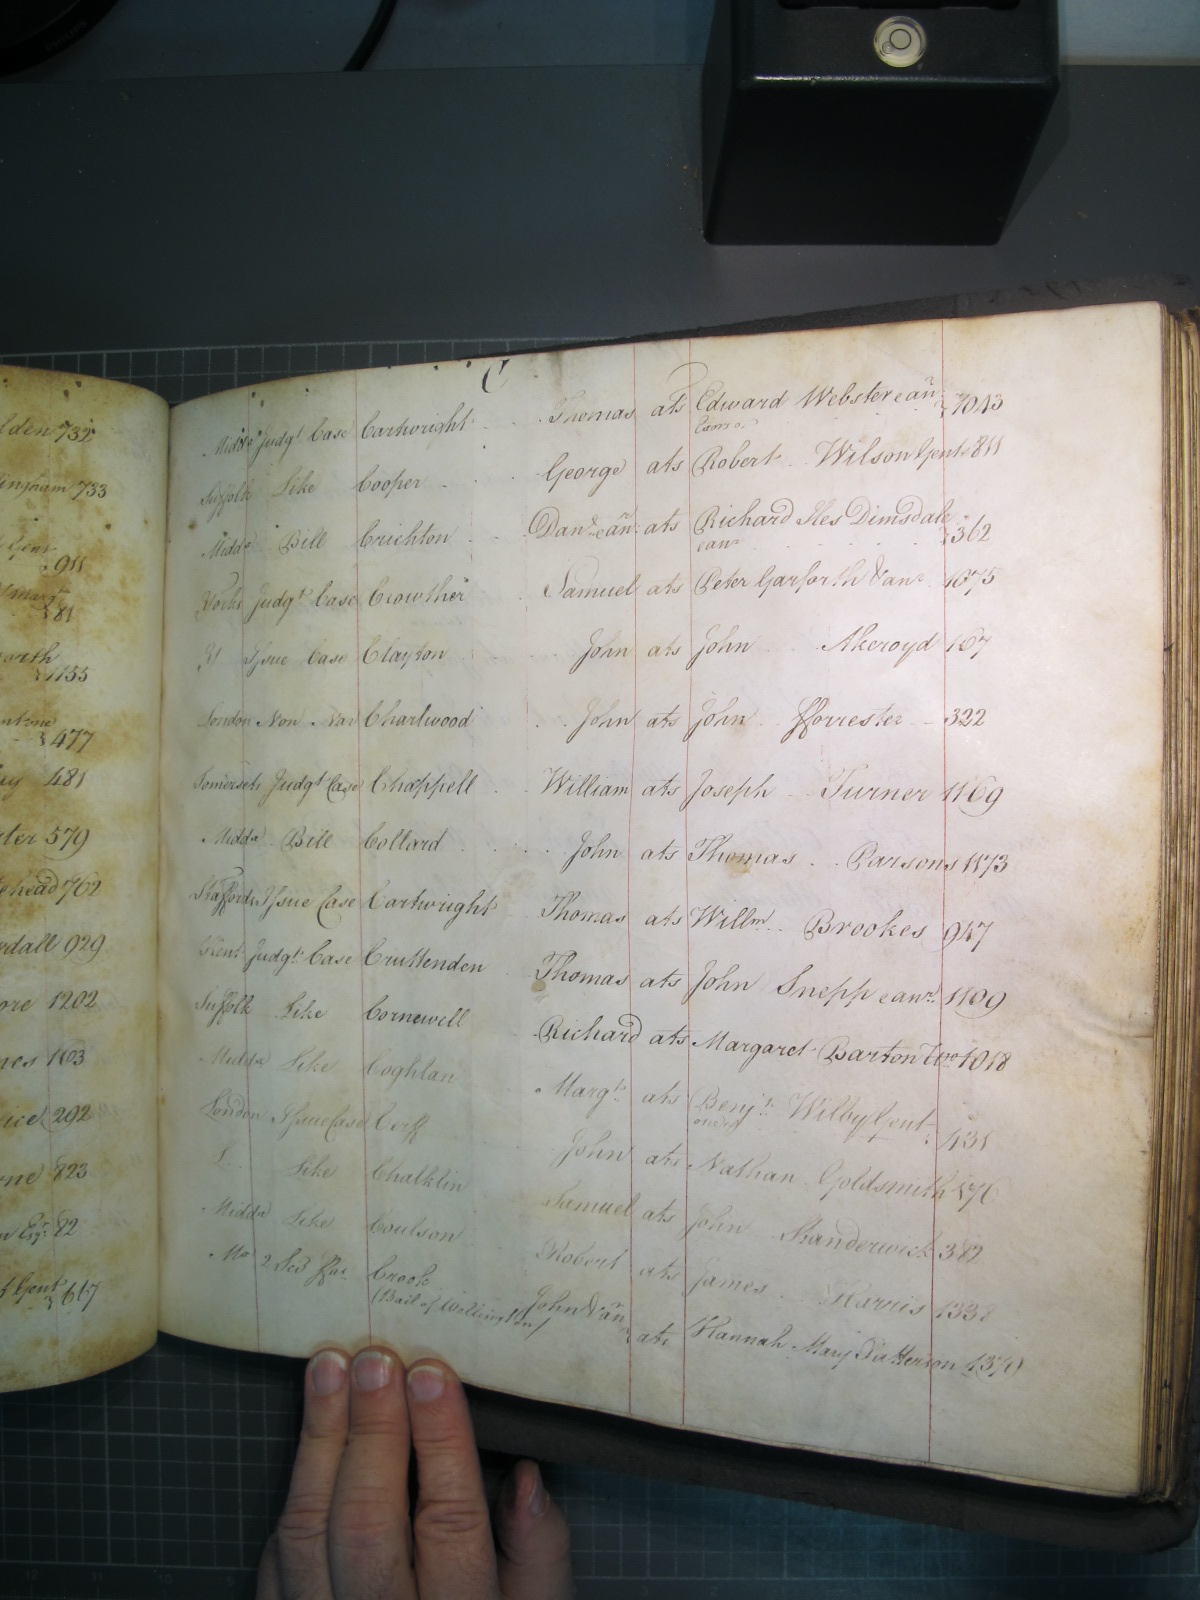 C
lden 732
ingham 733
Gent
911
Marg.t
81
orth
1155
477
481
ter 579
ehead 762
rdall 929
ore 1202
nes 1103
ice 292
ne 823
Esq.r 82
t Gent 617
Midd.x Judg.t Case Cartwright Thomas ats Edward Webster e an.r 1043
Suffolk Like Cooper George ats Robert Wilson Gent 811
Midd.x Bill Crichton Dan.l e an.r ats Richard Iles Dimsdale
e an.r 362
Yorks Judg.t Case Crowther Samuel ats Peter Garforth & an.r 1075
Issue Case Clayton John ats John Akeroyd 167
London Non Nar Charlwood John ats John fforrester 322
Somerset Judg.t Case Chappell William ats Joseph Turner 1169
Midd.x Bill Collard John ats Thomas Parsons 1173
Stafford Issue Case Cartwright Thomas ats Will.m Brookes 947
Kent Judg.t Case Cruttenden Thomas ats John Snepp e an.r 1109
Suffolk Like Cornewell Richard ats Margaret Barton Wo 1018
Midd.x Like Coghlan Marg.t ats Benj.n Wilby Gent 431
London Issue Case Cerff John ats Nathan Goldsmith 176
L Like Chalklin Samuel ats John Standerwick 382
Midd.x Like Coulson Robert ats James Harris 133
2 Sci ffac Crook John & an.r ats Hannah Mary Patterson
(Bail of Wellington)